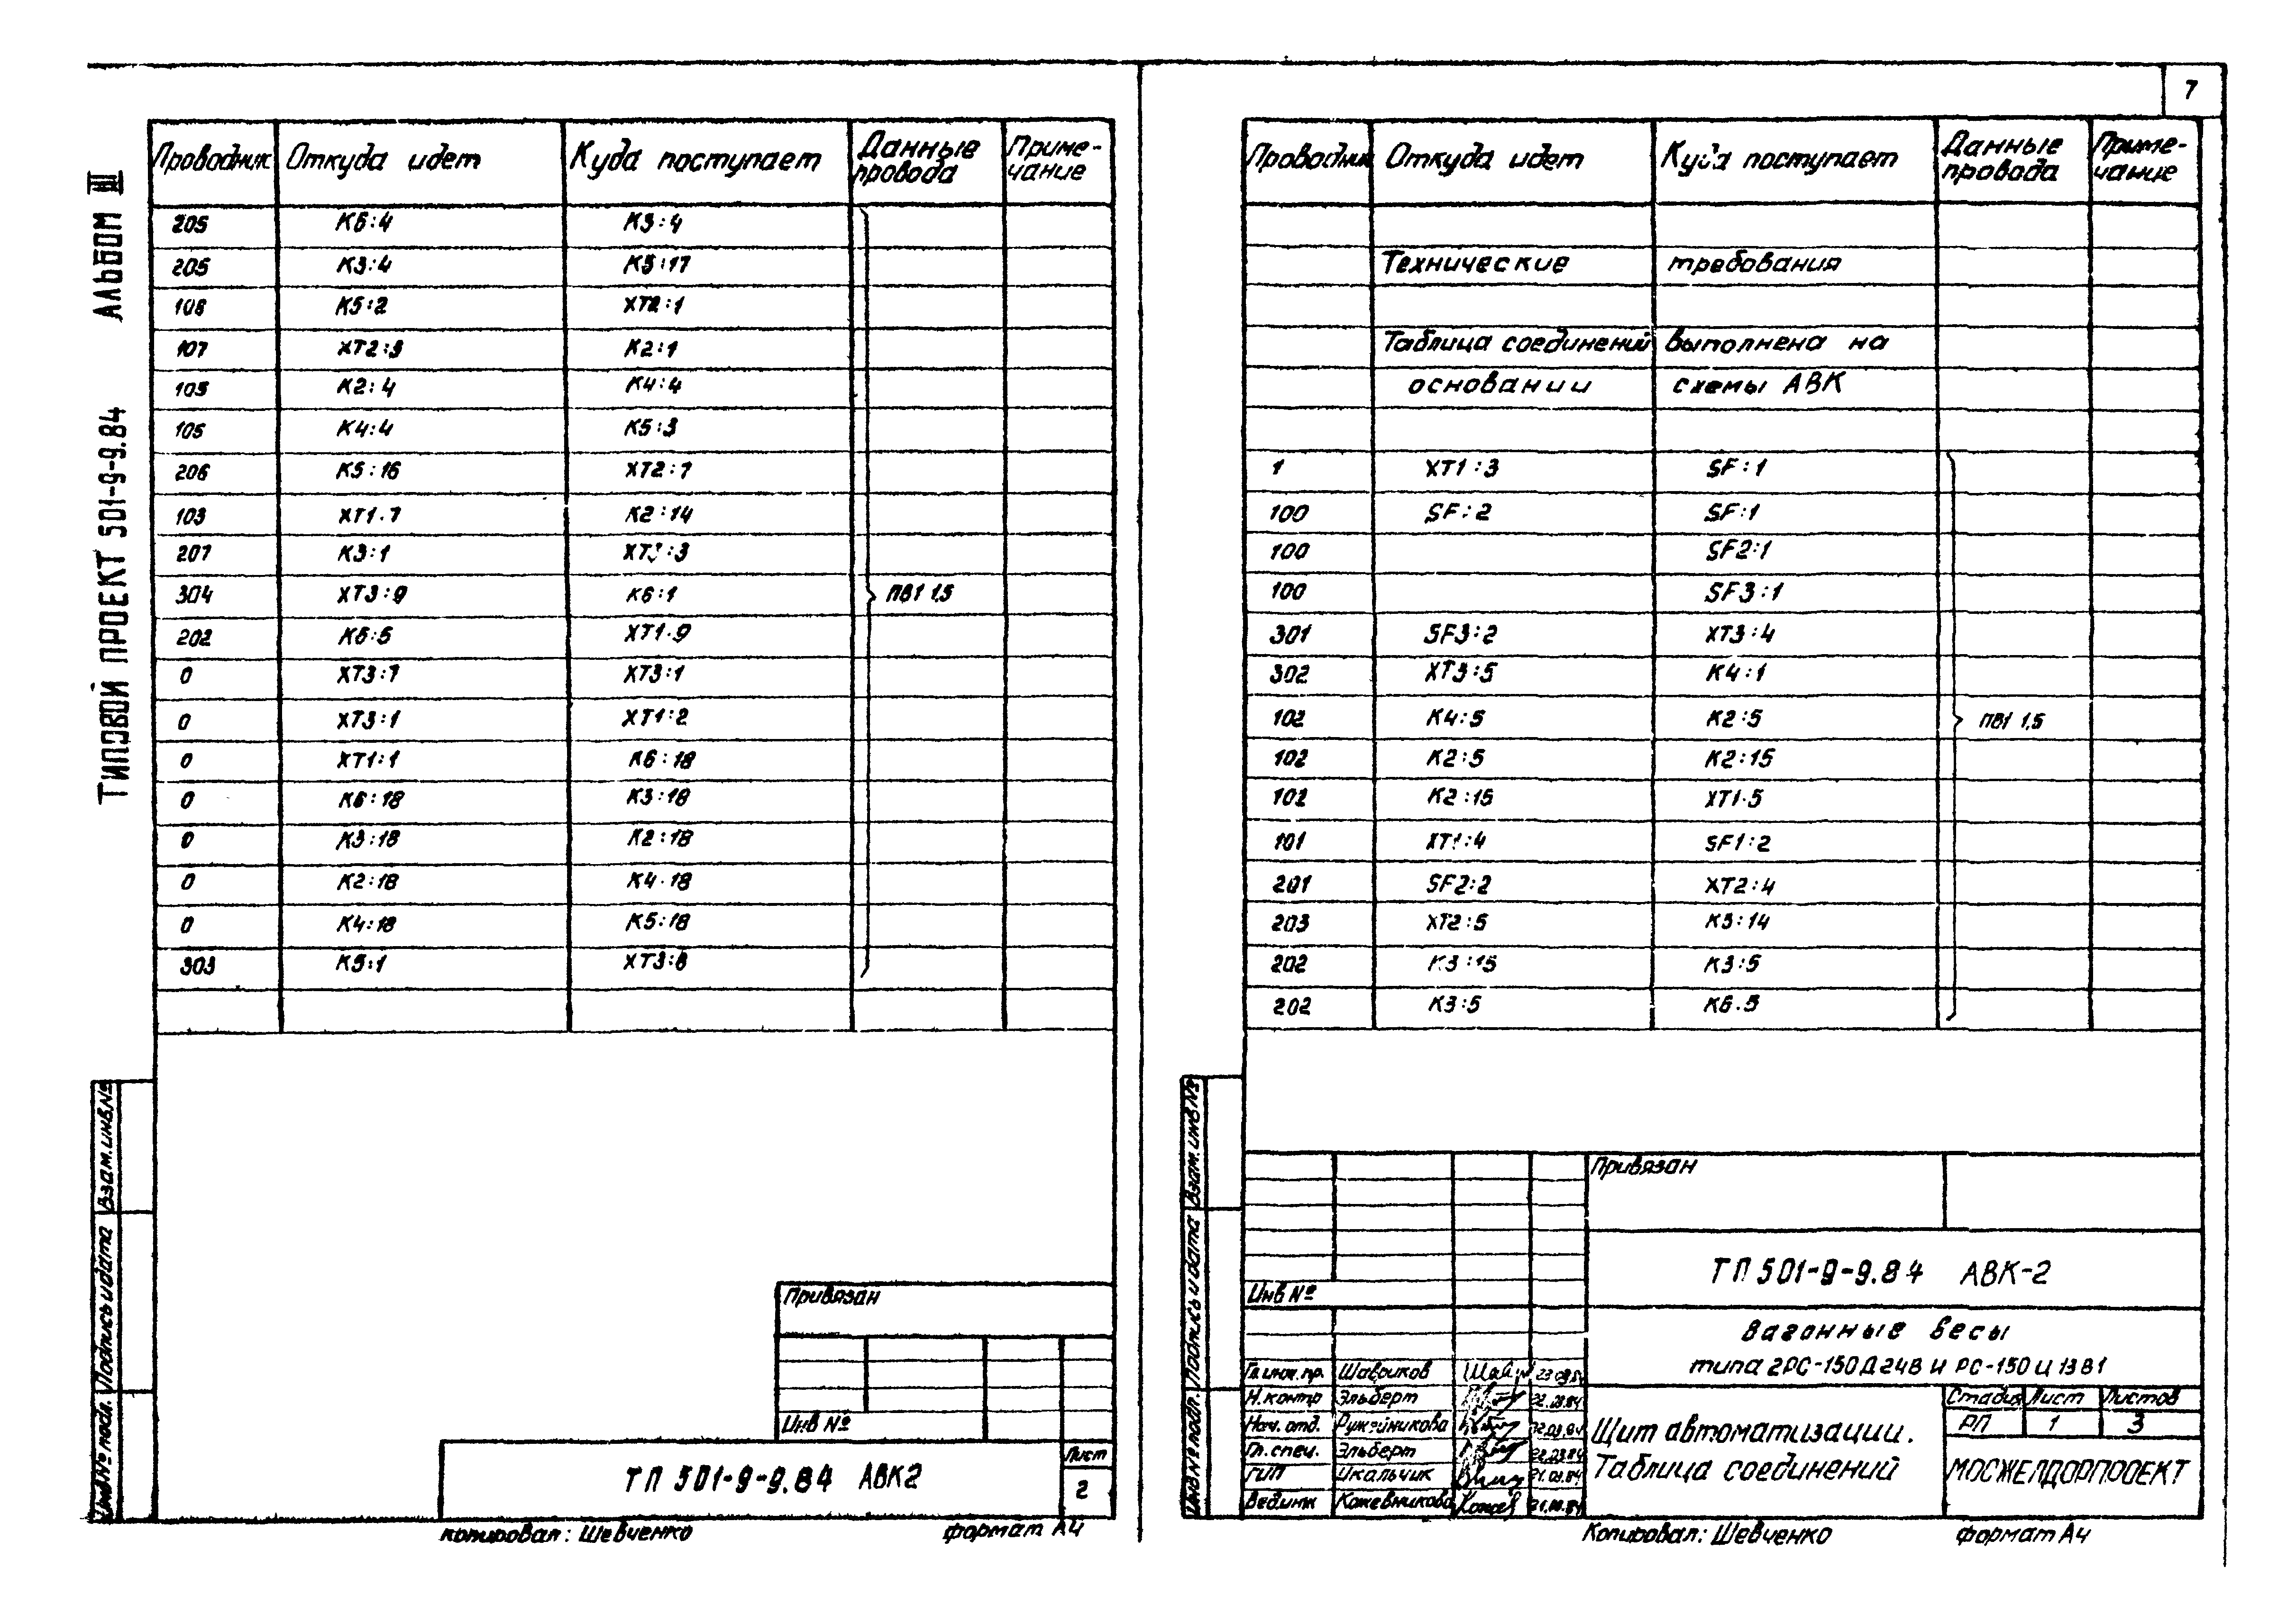 7
ТИПОВОЙ ПРОЕКТ 501-9-9.84 АЛЬБОМ III
Проводник Откуда идет Куда поступает Данные провода Приме-чание
205 К6:4 К3:4
205 К3:4 К5:17
108 К5:2 ХТ2:1
107 ХТ2:3 К2:1
105 К2:4 К4:4
105 К4:4 К5:3
206 К5:16 ХТ2:7
103 ХТ1.7 К2:14
207 К3:1 ХТ3:3
304 ХТ3:9 К6:1 ПВ1 1,5
202 К6:5 ХТ1.9
0 ХТ3:7 ХТ3:1
0 ХТ3:1 ХТ1:2
0 ХТ1:1 К6:18
0 К6:18 К3:18
0 К3:18 К2:18
0 К2:18 К4.18
0 К4:18 К5:18
303 К5:1 ХТ3:8
Привязан
Инв №
ТП 501-9-9.84 АВК2
Лист
2
Инв № подл. Подпись и дата Взам.инв№
Копировал: Шевченко формат А4
Проводник Откуда идет Куда поступает Данные провода Приме-чание
Технические требования
Таблица соединений выполнена на
основании схемы АВК
1 ХТ1:3 SF:1
100 SF:2 SF:1
100 SF2:1
100 SF3:1
301 SF3:2 ХТ3:4
302 ХТ3:5 К4:1
102 К4:5 К2:5 ПВ1 1,5
102 К2:5 К2:15
102 К2:15 ХТ1.5
101 ХТ1:4 SF1:2
201 SF2:2 ХТ2:4
203 ХТ2:5 К3:14
202 К3:15 К3:5
202 К3:5 К6.5
Инв № подл. Подпись и дата Взам.инв№
Привязан
Инв №
ТП 501-9-9.84 АВК-2
Вагонные весы
типа 2РС-150Д24В и РС-150Ц13В1
Гл.инж.пр. Шавриков 23.03.84
Н.контр Эльберт 22.03.84
Нач. отд. Ружейникова 22.03.84
Гл. спец. Эльберт 22.03.84
ГИП Икальчик 21.03.84
Вед.инж Кожевникова 21.03.84
Щит автоматизации.
Таблица соединений
Стадия Лист Листов
РП 1 3
МОСЖЕЛДОРПРОЕКТ
Копировал: Шевченко формат А4